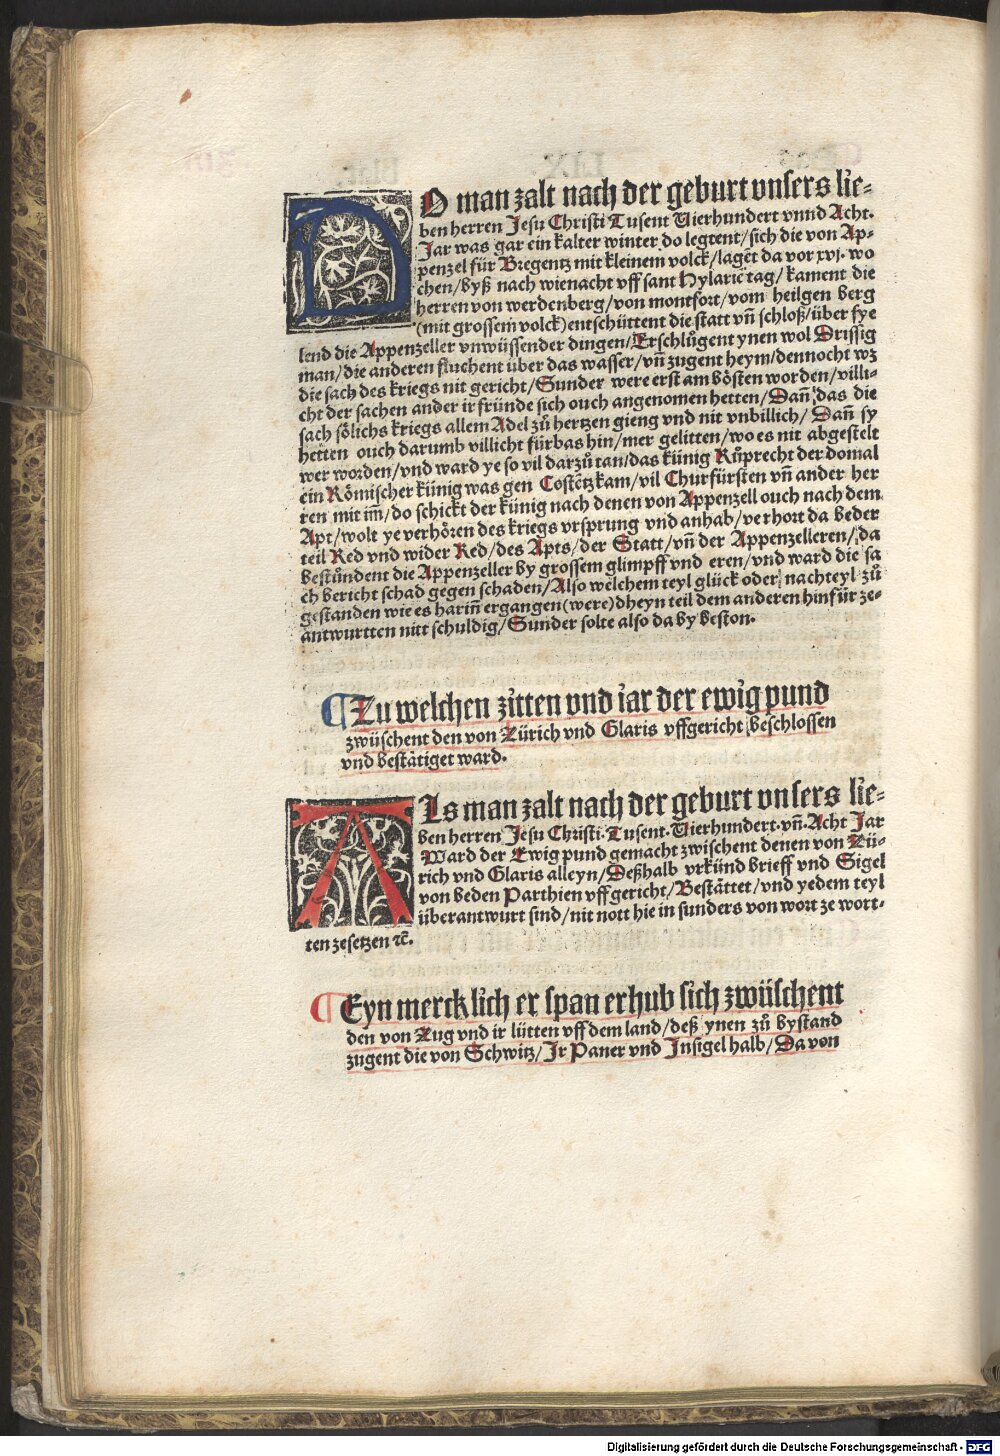 DO man zalt nach der geburt vnsers lie-
ben herren Jesu Christi Tusent Vierhundert vnnd Acht.
Jar was gar ein kalter winter do legtent/sich die von Ap-
penzel für Bregentz mit kleinem volck/lagēt da vor xvj. wo
chen/byß nach wienacht vff sant Hylariē tag/kament die
herren von werdenberg/von montfort/vom heilgen berg
(mit grossem volck)entschüttent die statt vn̄ schloß/über fye
lend die Appenzeller vnwüssender dingen/Erschlůgent ynen wol Drissig
man/die anderen fluchent über das wasser/vn̄ zugent heym/dennocht wz
die sach des kriegs nit gericht/Sunder were erst am bösten worden/villi-
cht der sachen ander ir fründe sich ouch angenomen hetten/Dan̄ das die
sach sölichs kriegs allem Adel zů hertzen gieng vnd nit vnbillich/Dan̄ sy
hetten ouch darumb villicht fürbas hin/mer gelitten/wo es nit abgestelt
wer worden/vnd ward ye so vil darzů tan/das künig Růprecht der domal
ein Römischer künig was gen Costētz kam/vil Churfürsten vn̄ ander her
ren mit im̄/do schickt der künig nach denen von Appenzell ouch nach dem
Apt/wolt ye verhören des kriegs vrsprung vnd anhab/verhort da beder
teil Red vnd wider Red/des Apts/der Statt/vn̄ der Appenzelleren/da
bestůndent die Appenzeller by grossem glimpff vnd eren/vnd ward die sa
ch bericht schad gegen schaden/Also welchem teyl glück oder nachteyl zů
gestanden wie es harin̄ ergangen(were)dheyn teil dem anderen hinfür ze-
antwurtten nitt schuldig/Sunder solte also da by beston.
¶Zu welchen zitten vnd iar der ewig pund
zwüschent den von Zürich vnd Glaris vffgericht beschlossen
vnd bestätiget ward.
ALs man zalt nach der geburt vnsers lie-
ben herren Jesu Christi. Tusent. Vierhundert. vn̄. Acht Jar
Ward der Ewig pund gemacht zwischent denen von Zü-
rich vnd Glaris alleyn/Deßhalb vrkünd brieff vnd Sigel
von beden Parthien vffgericht/Bestättet/vnd yedem teyl
überantwurt sind/nit nott hie in sunders von wort ze wort-
ten zesetzen ꝛc̄.
¶Eyn mercklich er span erhub sich zwüschent
den von Zug vnd ir lütten vff dem land/deß ynen zů bystand
zugent die von Schwitz/Ir Paner vnd Insigel halb/Da von
Digitalisierung gefördert durch die Deutsche Forschungsgemeinschaft - DFG